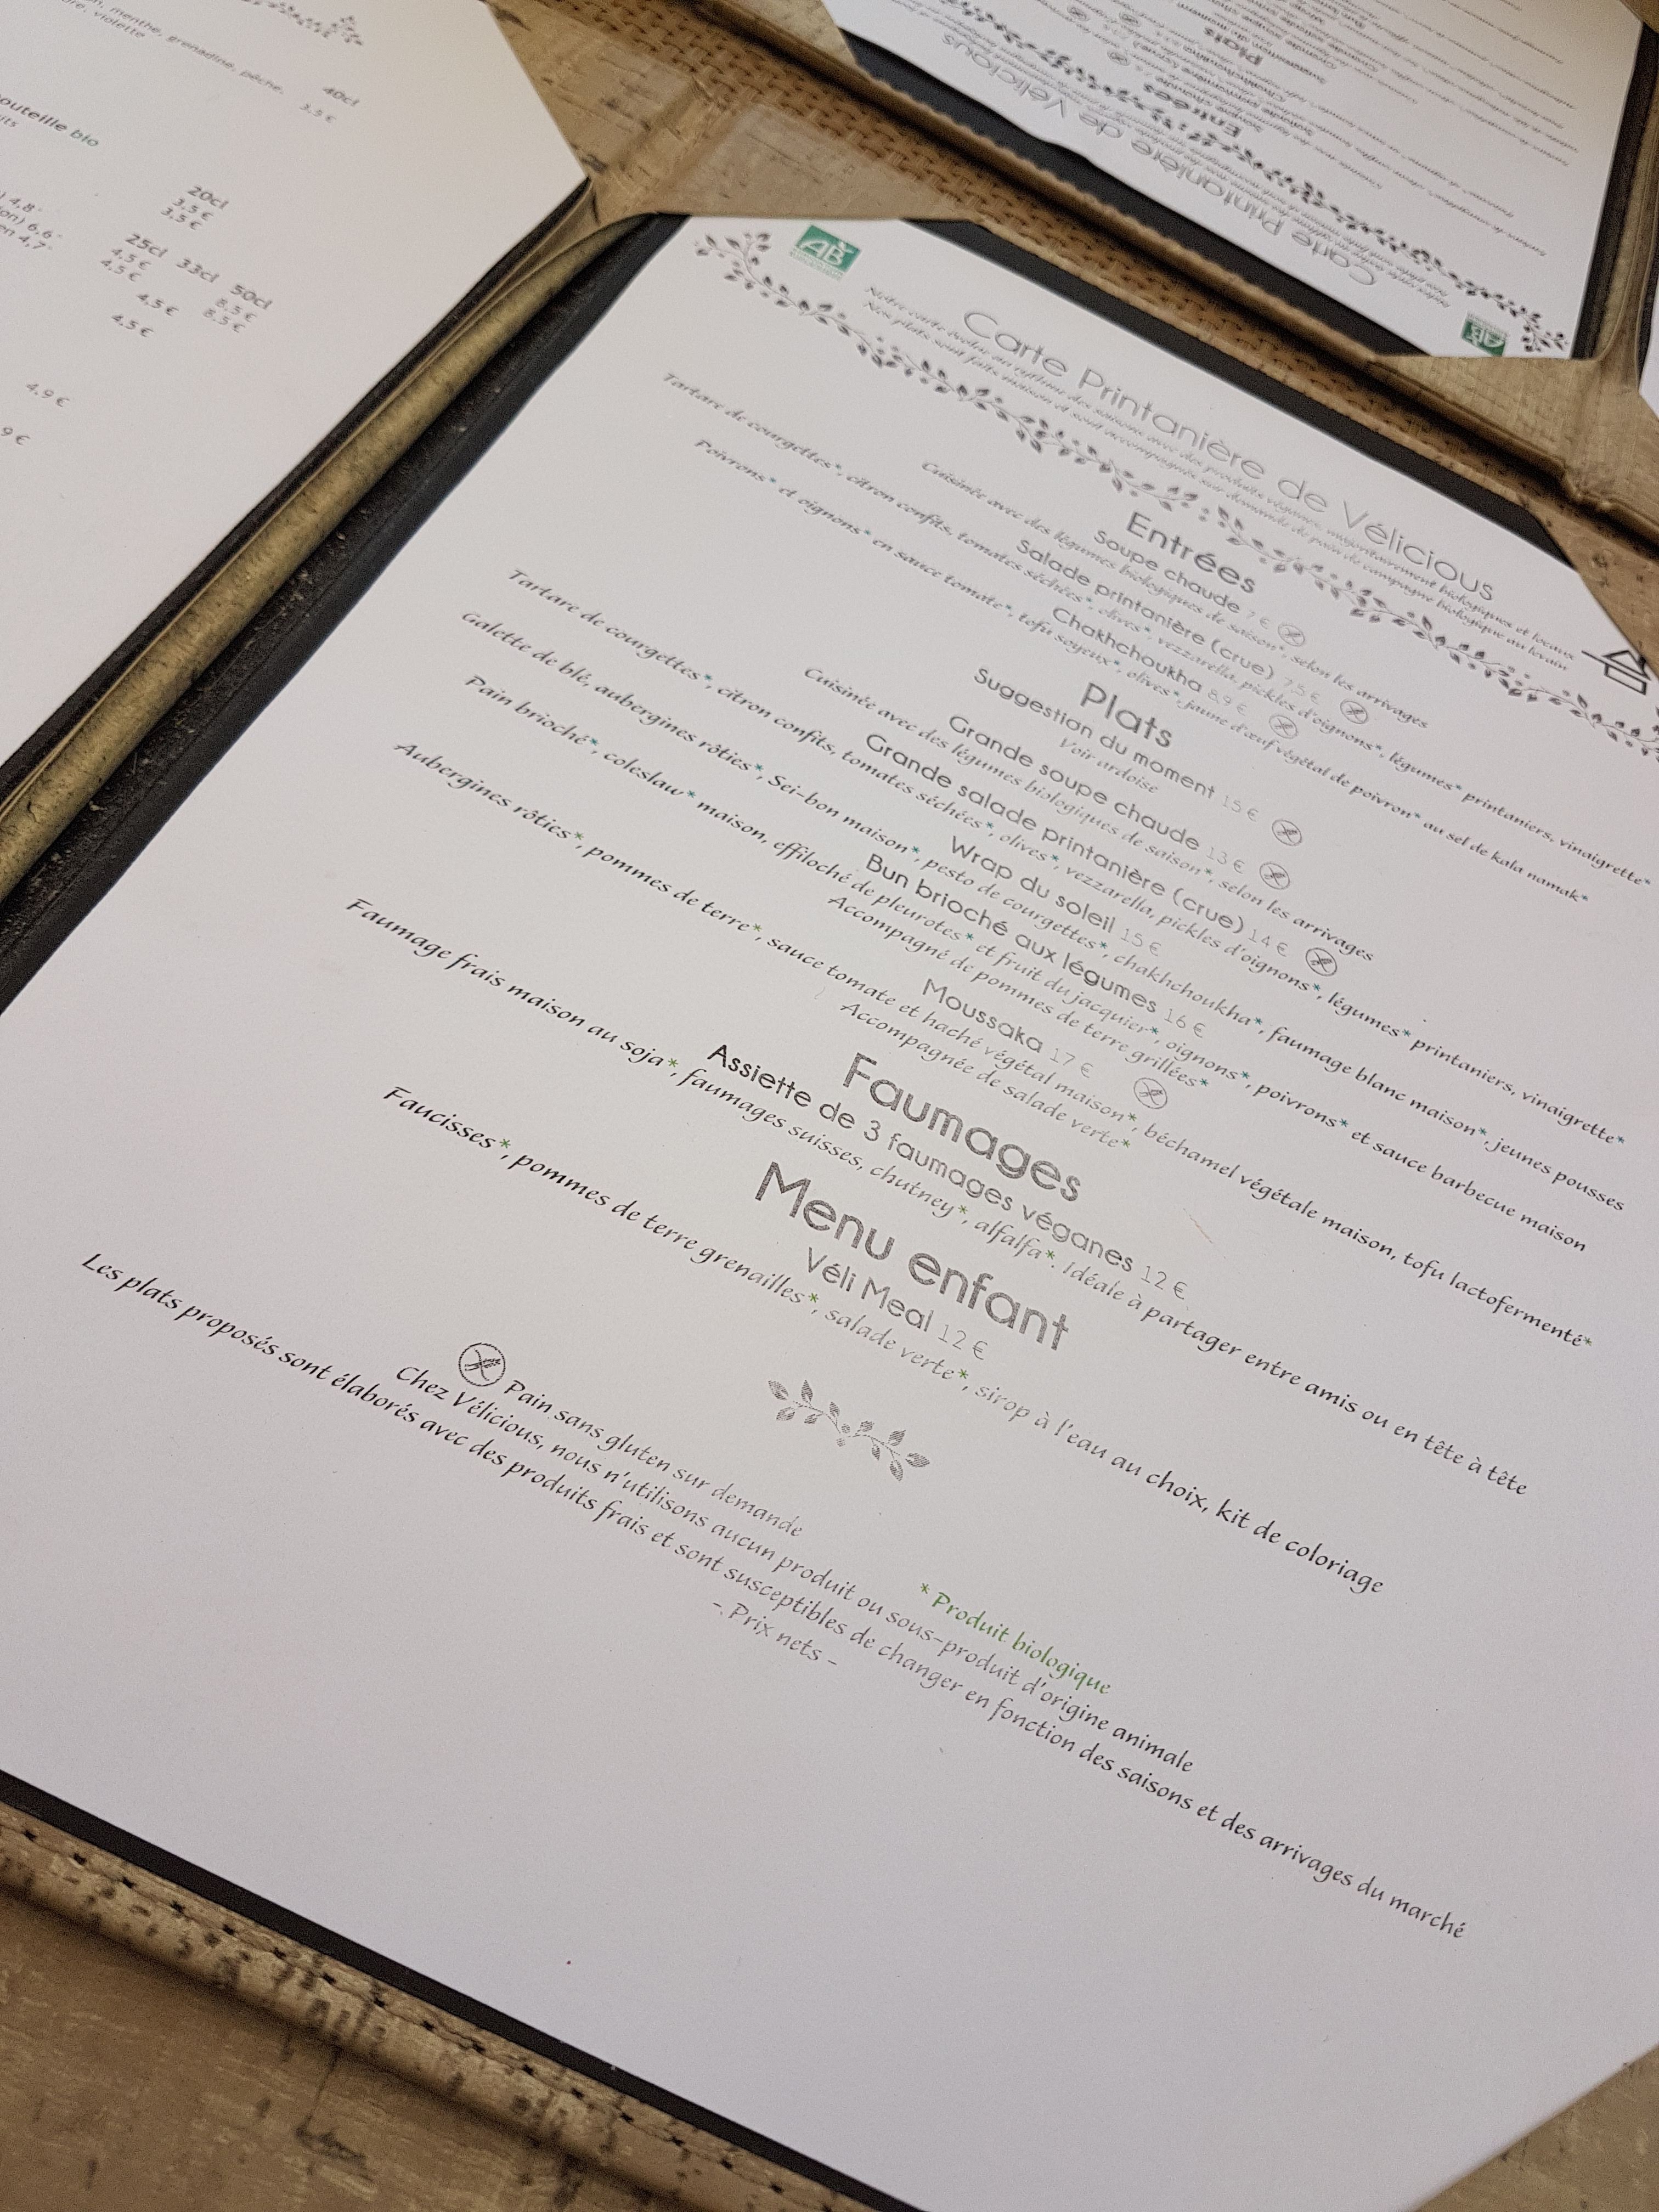 menthe, grenadine, pêche,
violette
40cl
3.5 €
bouteille bio
20cl
3.5 €
3.5 €
25cl 33cl 50cl
4.5 € 8.5 €
4.5 € 8.5 €
4.5 €
4.5 €
4.9 €
9 €
AB
Carte Printanière de Vélicious
Notre carte évolue au rythme des saisons avec des produits végans, majoritairement biologiques et locaux
Nos plats sont faits maison et sont accompagnés sur demande de pain de campagne biologique au levain
Entrées
Soupe chaude 7 €
Cuisinée avec des légumes biologiques de saison*, selon les arrivages
Salade printanière (crue) 7.5 €
Tartare de courgettes*, citron confits, tomates séchées*, olives*, vezzarella, pickles d'oignons*, légumes* printaniers, vinaigrette*
Chakhchoukha 8.9 €
Poivrons* et oignons* en sauce tomate*, tofu soyeux*, olives*, jaune d'œuf végétal de poivron* au sel de kala namak*
Plats
Suggestion du moment 15 €
Voir ardoise
Grande soupe chaude 13 €
Cuisinée avec des légumes biologiques de saison*, selon les arrivages
Grande salade printanière (crue) 14 €
Tartare de courgettes*, citron confits, tomates séchées*, olives*, vezzarella, pickles d'oignons*, légumes* printaniers, vinaigrette*
Wrap du soleil 15 €
Galette de blé, aubergines rôties*, Sei-bon maison*, pesto de courgettes*, chakhchoukha*, faumage blanc maison*, jeunes pousses
Bun brioché aux légumes 16 €
Pain brioché*, coleslaw* maison, effiloché de pleurotes* et fruit du jacquier*, oignons*, poivrons* et sauce barbecue maison
Accompagné de pommes de terre grillées*
Moussaka 17 €
Aubergines rôties*, pommes de terre*, sauce tomate et haché végétal maison*, béchamel végétale maison, tofu lactofermenté*
Accompagnée de salade verte*
Faumages
Assiette de 3 faumages véganes 12 €
Faumage frais maison au soja*, faumages suisses, chutney*, alfalfa*. Idéale à partager entre amis ou en tête à tête
Menu enfant
Véli Meal 12 €
Faucisses*, pommes de terre grenailles*, salade verte*, sirop à l'eau au choix, kit de coloriage
Pain sans gluten sur demande
* Produit biologique
Chez Vélicious, nous n'utilisons aucun produit ou sous-produit d'origine animale
Les plats proposés sont élaborés avec des produits frais et sont susceptibles de changer en fonction des saisons et des arrivages du marché
- Prix nets -
AB
Carte Printanière de Vélicious
Entrées
Plats